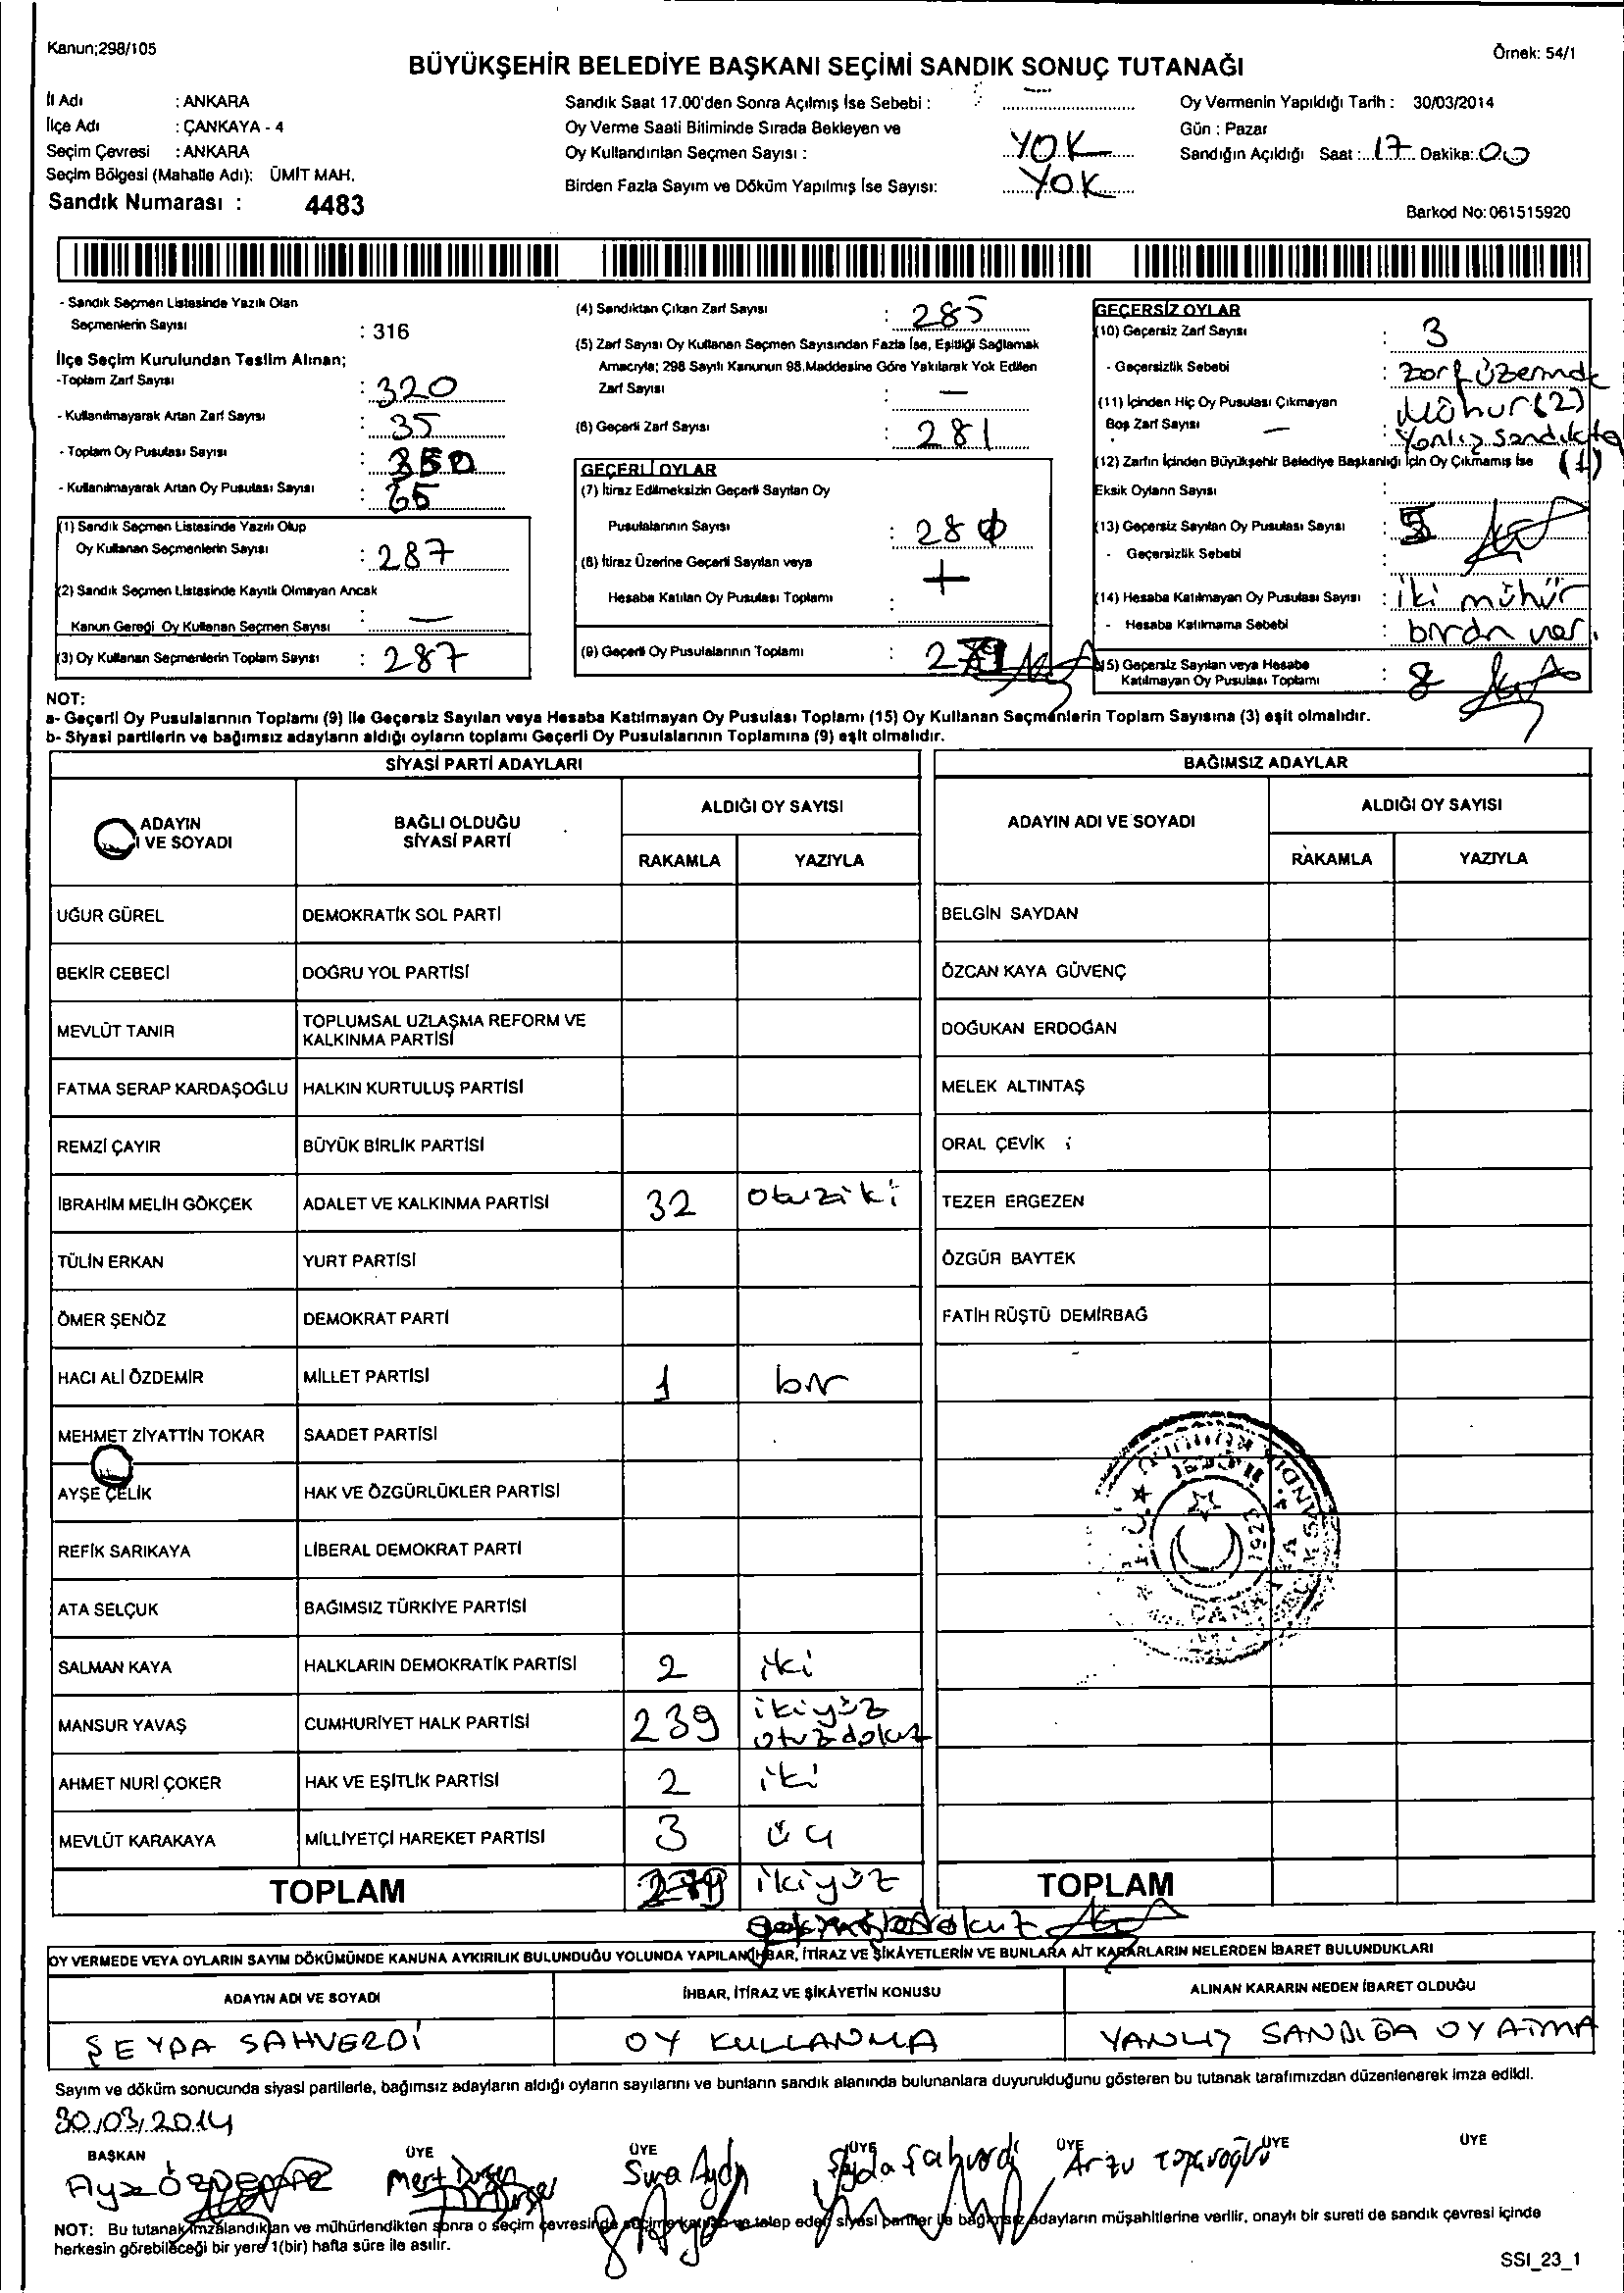 Kanun;298/105
Örnek: 54/1
BÜYÜKŞEHİR BELEDİYE BAŞKANI SEÇİMİ SANDIK SONUÇ TUTANAĞI
İl Adı : ANKARA
İlçe Adı : ÇANKAYA - 4
Seçim Çevresi : ANKARA
Seçim Bölgesi (Mahalle Adı): ÜMİT MAH.
Sandık Numarası : 4483
Sandık Saat 17.00'den Sonra Açılmış İse Sebebi :
Oy Verme Saati Bitiminde Sırada Bekleyen ve
Oy Kullandırılan Seçmen Sayısı : YOK
Birden Fazla Sayım ve Döküm Yapılmış İse Sayısı: YOK
Oy Vermenin Yapıldığı Tarih : 30/03/2014
Gün : Pazar
Sandığın Açıldığı Saat : 17 Dakika: 00
Barkod No: 061515920
- Sandık Seçmen Listesinde Yazılı Olan
Seçmenlerin Sayısı : 316
İlçe Seçim Kurulundan Teslim Alınan;
-Toplam Zarf Sayısı : 320
- Kullanılmayarak Artan Zarf Sayısı : 35
- Toplam Oy Pusulası Sayısı : 350
- Kullanılmayarak Artan Oy Pusulası Sayısı :
(1) Sandık Seçmen Listesinde Yazılı Olup
Oy Kullanan Seçmenlerin Sayısı : 287
(2) Sandık Seçmen Listesinde Kayıtlı Olmayan Ancak
Kanun Gereği Oy Kullanan Seçmen Sayısı : —
(3) Oy Kullanan Seçmenlerin Toplam Sayısı : 287
(4) Sandıktan Çıkan Zarf Sayısı : 285
(5) Zarf Sayısı Oy Kullanan Seçmen Sayısından Fazla İse, Eşitliği Sağlamak
Amacıyla; 298 Sayılı Kanunun 98.Maddesine Göre Yakılarak Yok Edilen
Zarf Sayısı : —
(6) Geçerli Zarf Sayısı : 281
GEÇERLİ OYLAR
(7) İtiraz Edilmeksizin Geçerli Sayılan Oy
Pusulalarının Sayısı : 28
(8) İtiraz Üzerine Geçerli Sayılan veya
Hesaba Katılan Oy Pusulası Toplamı :
(9) Geçerli Oy Pusulalarının Toplamı : 279
GEÇERSİZ OYLAR
(10) Geçersiz Zarf Sayısı : 3
- Geçersizlik Sebebi : zarf üzerinde
mühür (2)
(11) İçinden Hiç Oy Pusulası Çıkmayan
Boş Zarf Sayısı — : Yanlış sandıkta
(12) Zarfın İçinden Büyükşehir Belediye Başkanlığı İçin Oy Çıkmamış İse (1)
Eksik Oyların Sayısı :
(13) Geçersiz Sayılan Oy Pusulası Sayısı : 5
- Geçersizlik Sebebi :
(14) Hesaba Katılmayan Oy Pusulası Sayısı : iki mühür
- Hesaba Katılmama Sebebi : birden var.
(15) Geçersiz Sayılan veya Hesaba
Katılmayan Oy Pusulası Toplamı : 8
NOT:
a- Geçerli Oy Pusulalarının Toplamı (9) ile Geçersiz Sayılan veya Hesaba Katılmayan Oy Pusulası Toplamı (15) Oy Kullanan Seçmenlerin Toplam Sayısına (3) eşit olmalıdır.
b- Siyasi partilerin ve bağımsız adayların aldığı oyların toplamı Geçerli Oy Pusulalarının Toplamına (9) eşit olmalıdır.
SİYASİ PARTİ ADAYLARI
BAĞIMSIZ ADAYLAR
ADAYIN
I VE SOYADI
BAĞLI OLDUĞU
SİYASİ PARTİ
ALDIĞI OY SAYISI
RAKAMLA YAZIYLA
ADAYIN ADI VE SOYADI
ALDIĞI OY SAYISI
RAKAMLA YAZIYLA
UĞUR GÜREL DEMOKRATİK SOL PARTİ BELGİN SAYDAN
BEKİR CEBECİ DOĞRU YOL PARTİSİ ÖZCAN KAYA GÜVENÇ
MEVLÜT TANIR TOPLUMSAL UZLAŞMA REFORM VE
KALKINMA PARTİSİ DOĞUKAN ERDOĞAN
FATMA SERAP KARDAŞOĞLU HALKIN KURTULUŞ PARTİSİ MELEK ALTINTAŞ
REMZİ ÇAYIR BÜYÜK BİRLİK PARTİSİ ORAL ÇEVİK
İBRAHİM MELİH GÖKÇEK ADALET VE KALKINMA PARTİSİ 32 otuziki TEZER ERGEZEN
TÜLİN ERKAN YURT PARTİSİ ÖZGÜR BAYTEK
ÖMER ŞENÖZ DEMOKRAT PARTİ FATİH RÜŞTÜ DEMİRBAĞ
HACI ALİ ÖZDEMİR MİLLET PARTİSİ 1 bir
MEHMET ZİYATTİN TOKAR SAADET PARTİSİ
AYŞE ÇELİK HAK VE ÖZGÜRLÜKLER PARTİSİ
REFİK SARIKAYA LİBERAL DEMOKRAT PARTİ
ATA SELÇUK BAĞIMSIZ TÜRKİYE PARTİSİ
SALMAN KAYA HALKLARIN DEMOKRATİK PARTİSİ 2 iki
MANSUR YAVAŞ CUMHURİYET HALK PARTİSİ 239 ikiyüz
otuzdokuz
AHMET NURİ ÇOKER HAK VE EŞİTLİK PARTİSİ 2 iki
MEVLÜT KARAKAYA MİLLİYETÇİ HAREKET PARTİSİ 3 üç
TOPLAM 279 ikiyüz TOPLAM
OY VERMEDE VEYA OYLARIN SAYIM DÖKÜMÜNDE KANUNA AYKIRILIK BULUNDUĞU YOLUNDA YAPILAN İHBAR, İTİRAZ VE ŞİKÂYETLERİN VE BUNLARA AİT KARARLARIN NELERDEN İBARET BULUNDUKLARI
ADAYIN ADI VE SOYADI İHBAR, İTİRAZ VE ŞİKÂYETİN KONUSU ALINAN KARARIN NEDEN İBARET OLDUĞU
ŞEYDA SAHVERDİ OY KULLANMA YANLIŞ SANDIĞA OY ATMA
Sayım ve döküm sonucunda siyasi partilerle, bağımsız adayların aldığı oyların sayılarını ve bunların sandık alanında bulunanlara duyurulduğunu gösteren bu tutanak tarafımızdan düzenlenerek imza edildi.
30/03/2014
BAŞKAN ÜYE ÜYE ÜYE ÜYE ÜYE ÜYE
Ayşe ÖZDEMİR Mert Dursen Sıra Aydın Şeyda Şahverdi Arzu Topçuoğlu
NOT: Bu tutanak imzalandıktan ve mühürlendikten sonra o seçim çevresinde seçime katılan ve talep eden siyasi partiler ile bağımsız adayların müşahitlerine verilir, onaylı bir sureti de sandık çevresi içinde
herkesin görebileceği bir yere 1(bir) hafta süre ile asılır.
SSI_23_1